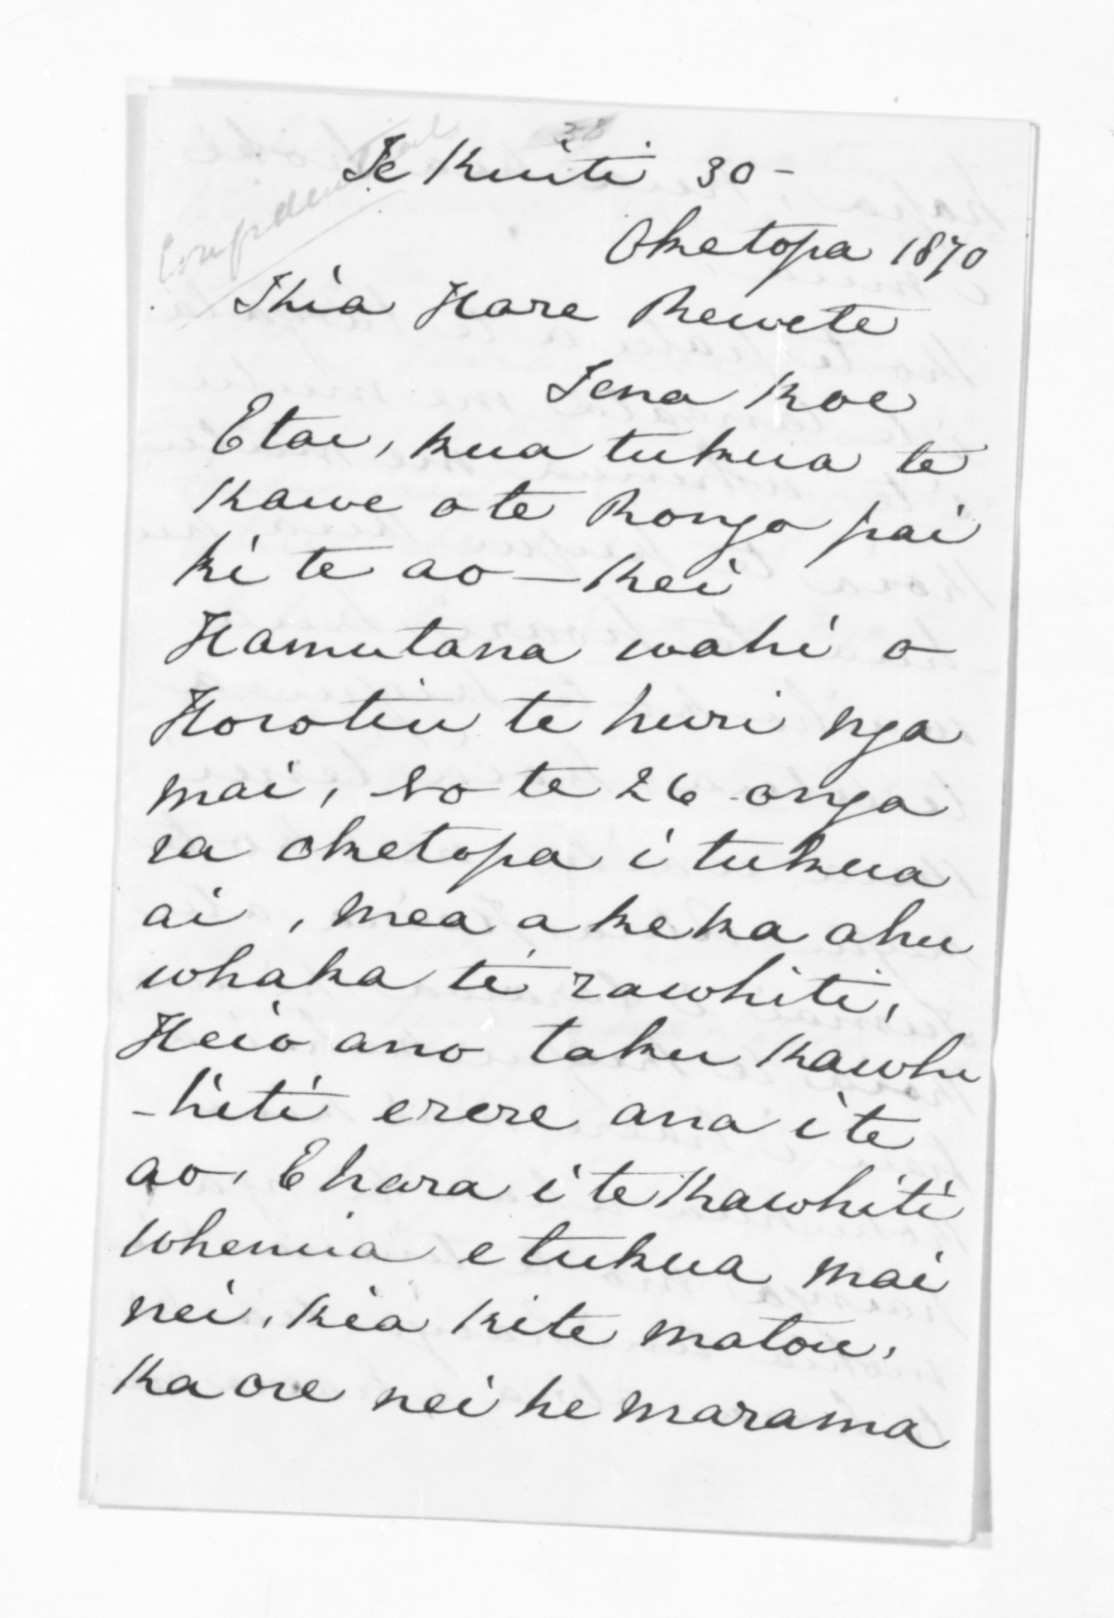 28
Confidential
Te Kuiti 30 -
Oketopa 1870
Kia Hare Rewete
Tena Koe
Etai, kua tukua te
Kawe o te Rongo pai
ki te ao — Kei
Hamutana wahi o
Horotiu te huri nga
mai, No te 26 onga
ra oketopa i tukua
ai, mea a ke ka ahu
whaka te rawhiti,
Heio ano taku Kawhi
-hiti erere ana i te
ao, Ehara i te Kawhiti
whenua e tukua mai
nei, kia kite matou,
Ka ore nei he marama